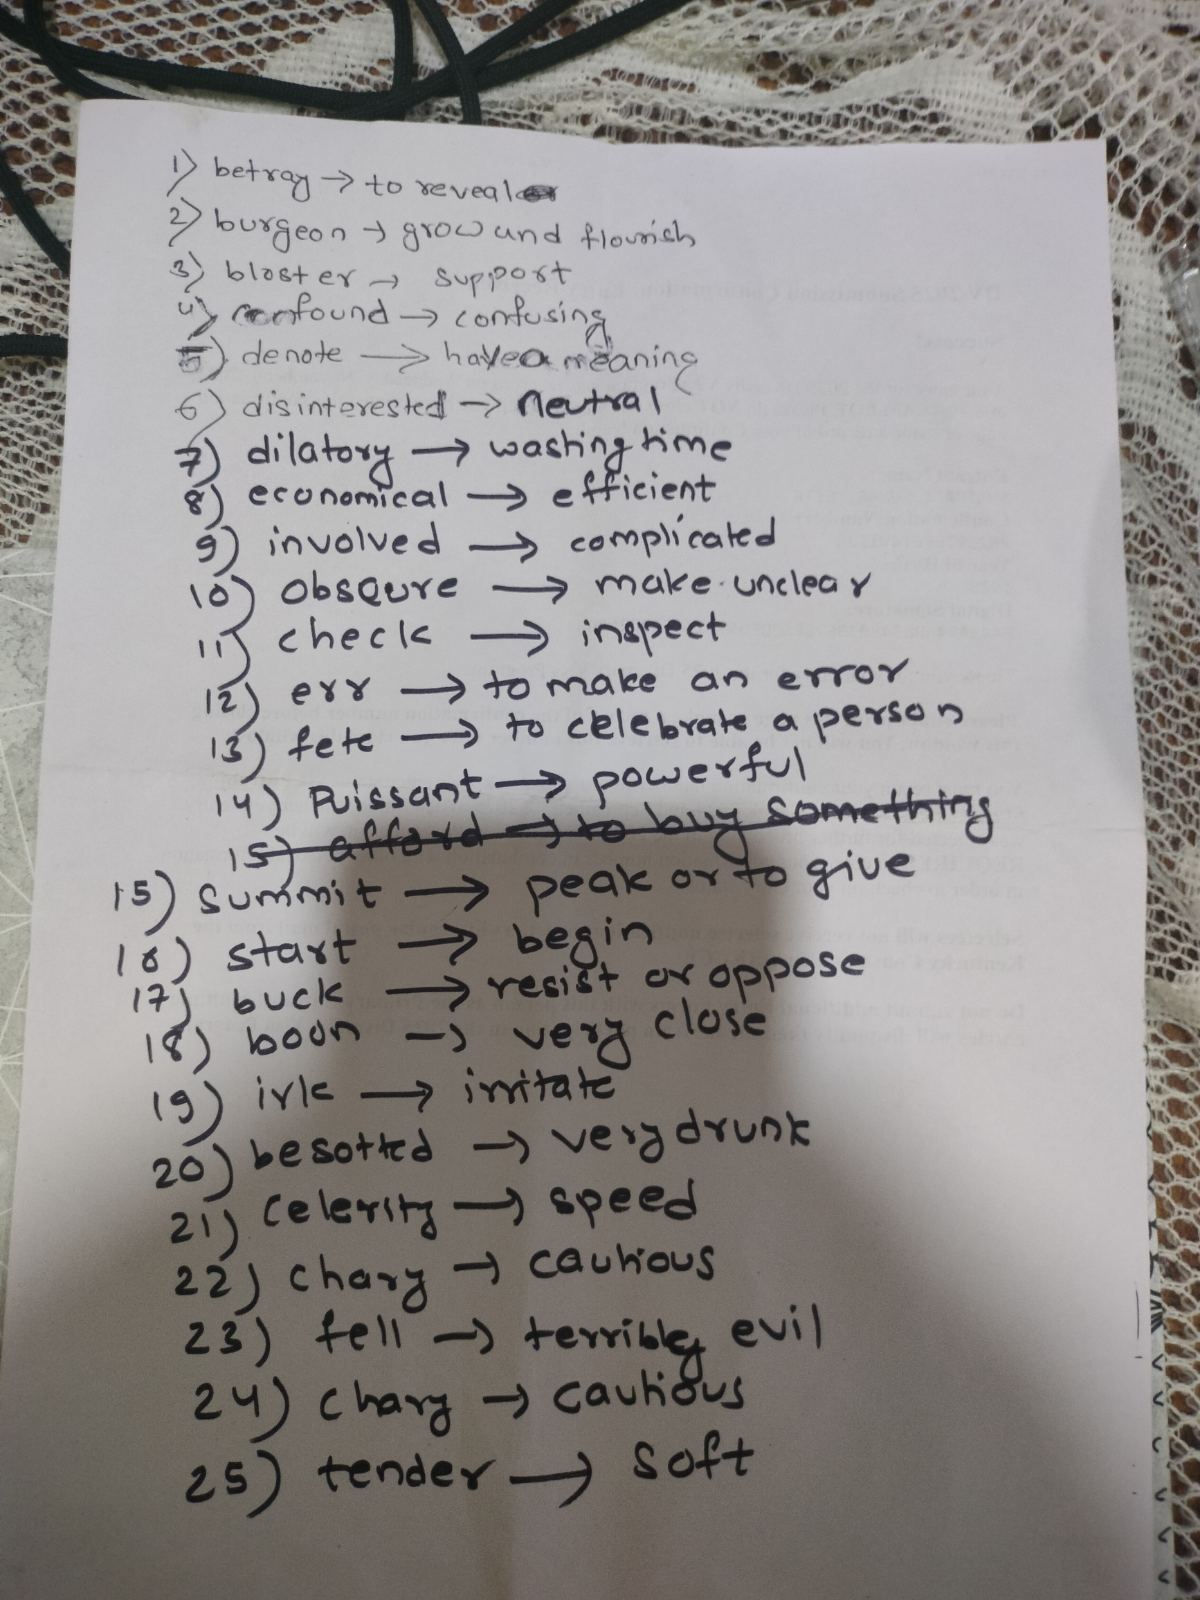 1) betray → to reveal
2) burgeon → grow and flourish
3) bloster → support
4) confound → confusing
5) denote → have a meaning
6) disinterested → neutral
7) dilatory → wasting time
8) economical → efficient
9) involved → complicated
10) obsqure → make unclear
11) check → inspect
12) err → to make an error
13) fete → to celebrate a person
14) Puissant → powerful
15) afford → to buy something
15) summit → peak or to give
16) start → begin
17) buck → resist or oppose
18) boon → very close
19) irk → irritate
20) besotted → very drunk
21) celerity → speed
22) chary → cautious
23) fell → terribly evil
24) chary → cautious
25) tender → soft